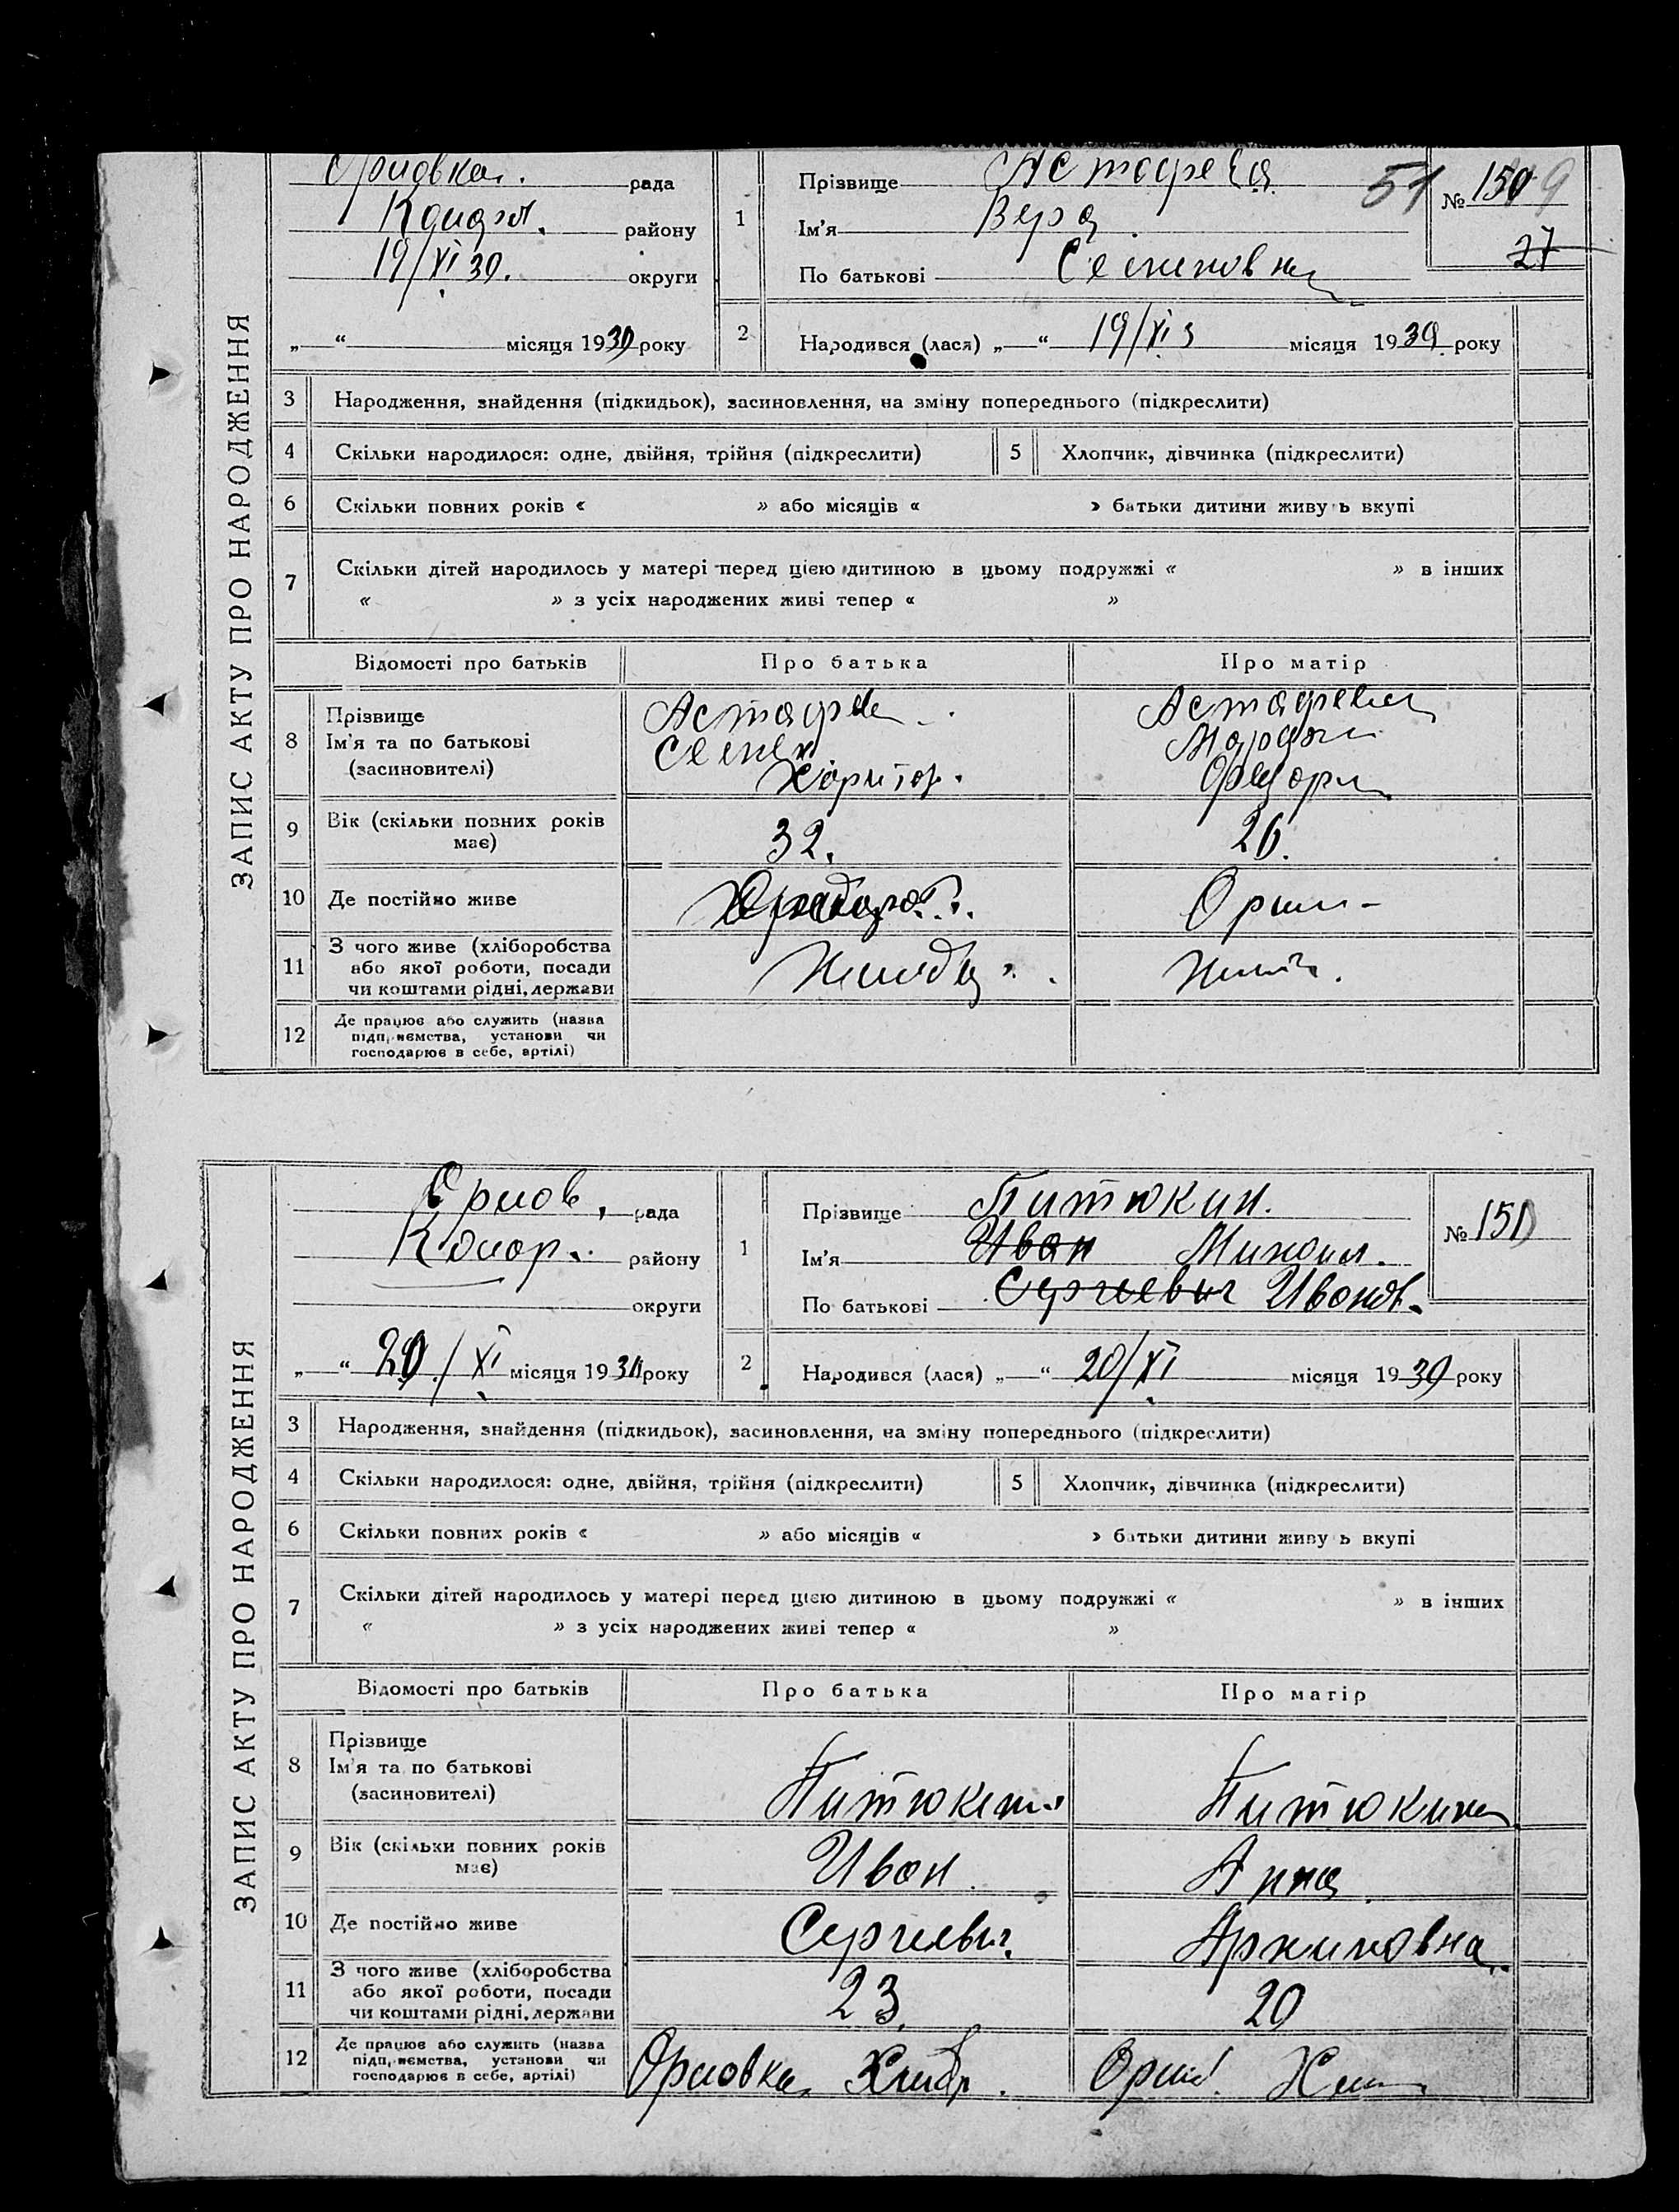 ЗАПИС АКТУ ПРО НАРОДЖЕННЯ
Орловка. рада
району
19/XI 39. округи
„ “ місяця 1939 року
1
Прізвище Астафева
Ім'я Вера
По батькові Семеновна
51
№ 150 9
27
2
Народився (лася) „ “ 19/XI місяця 1939 року
3 Народження, знайдення (підкидьок), засиновлення, на зміну попереднього (підкреслити)
4 Скільки народилося: одне, двійня, трійня (підкреслити) 5 Хлопчик, дівчинка (підкреслити)
6 Скільки повних років « » або місяців « » батьки дитини живу ь вкупі
7 Скільки дітей народилось у матері перед цією дитиною в цьому подружжі « » в інших
« » з усіх народжених живі тепер « »
Відомості про батьків Про батька Про матір
8 Прізвище
Ім'я та по батькові
(засиновителі)
Астафев
Семен
Харитон.
Астафева
Федор
9 Вік (скільки повних років
має)
32. 26.
10 Де постійно живе
Орл
11 З чого живе (хліборобства
або якої роботи, посади
чи коштами рідні, держави
12 Де працює або служить (назва
підприємства, установи чи
господарює в себе, артілі)
ЗАПИС АКТУ ПРО НАРОДЖЕННЯ
Орлов. рада
району
округи
„ “ 20/XI місяця 193 року
1
Прізвище Питюкин.
Ім'я Иван Михаил.
По батькові Сергеевич Иванов.
№ 151
2
Народився (лася) „ “ 20/XI місяця 1939 року
3 Народження, знайдення (підкидьок), засиновлення, на зміну попереднього (підкреслити)
4 Скільки народилося: одне, двійня, трійня (підкреслити) 5 Хлопчик, дівчинка (підкреслити)
6 Скільки повних років « » або місяців « » батьки дитини живу ь вкупі
7 Скільки дітей народилось у матері перед цією дитиною в цьому подружжі « » в інших
« » з усіх народжених живі тепер « »
Відомості про батьків Про батька Про матір
8 Прізвище
Ім'я та по батькові
(засиновителі)
Питюкин Питюкина
9 Вік (скільки повних років
має)
Иван Анна
10 Де постійно живе
Сергеевич. Архиповна.
11 З чого живе (хліборобства
або якої роботи, посади
чи коштами рідні, держави
23. 20
12 Де працює або служить (назва
підприємства, установи чи
господарює в себе, артілі)
Орловка Хлибр. Орлов.